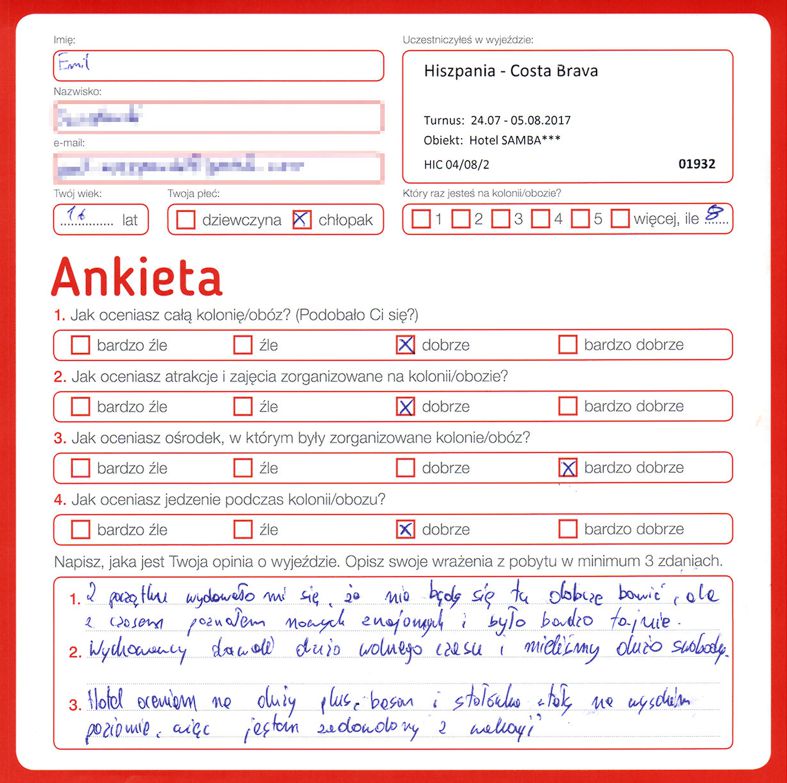 Imię:
Uczestniczyłeś w wyjeździe:
Emil
Hiszpania - Costa Brava
Nazwisko:
Turnus: 24.07 - 05.08.2017
e-mail:
Obiekt: Hotel SAMBA***
HIC 04/08/2
01932
Twój wiek:
Twoja płeć:
Który raz jesteś na kolonii/obozie?
16 lat
dziewczyna chłopak
1 2 3 4 5 więcej, ile 8
Ankieta
1. Jak oceniasz całą kolonię/obóz? (Podobało Ci się?)
bardzo źle źle dobrze bardzo dobrze
2. Jak oceniasz atrakcje i zajęcia zorganizowane na kolonii/obozie?
bardzo źle źle dobrze bardzo dobrze
3. Jak oceniasz ośrodek, w którym były zorganizowane kolonie/obóz?
bardzo źle źle dobrze bardzo dobrze
4. Jak oceniasz jedzenie podczas kolonii/obozu?
bardzo źle źle dobrze bardzo dobrze
Napisz, jaka jest Twoja opinia o wyjeździe. Opisz swoje wrażenia z pobytu w minimum 3 zdaniach.
1. Z początku wydawało mi się, że nie będę się tu dobrze bawić, ale
z czasem poznałem nowych znajomych i było bardzo fajnie.
2. Wychowawcy dawali dużo wolnego czasu i mieliśmy dużo swobody.
3. Hotel oceniam na duży plus, basen i stołówka stały na wysokim
poziomie, więc jestem zadowolony z wakacji